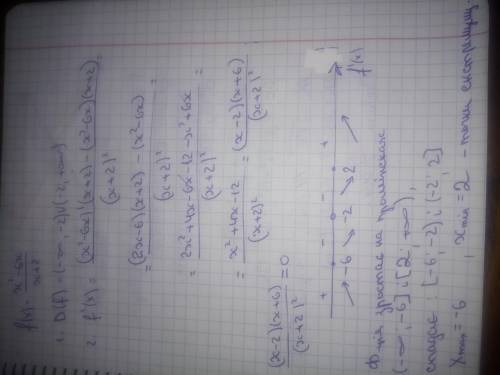 f(x) = x²-6x / x+2
1. D(f) = (-∞; -2)∪(-2; +∞)
2. f'(x) = (x²-6x)'(x+2) - (x²-6x)(x+2)' / (x+2)² =
= (2x-6)(x+2) - (x²-6x) / (x+2)² =
= 2x²+4x-6x-12-x²+6x / (x+2)² =
= x²+4x-12 / (x+2)² = (x-2)(x+6) / (x+2)²
(x-2)(x+6) / (x+2)² = 0
+ - - + f'(x)
-6 -2 2
Ф-ція зростає на проміжках
(-∞; -6] і [2; +∞),
спадає: [-6; -2) і (-2; 2]
Xmax = -6, xmin = 2 - точки екстремуму.